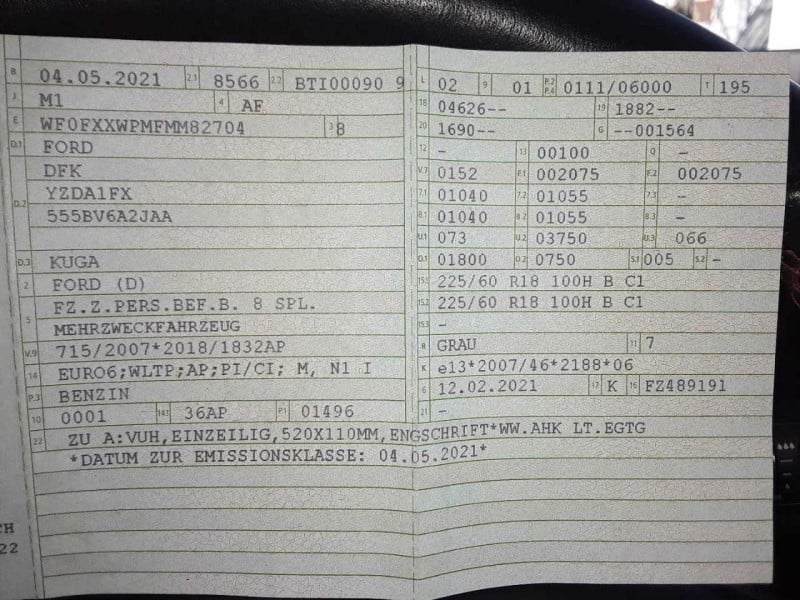 B 04.05.2021 2.1 8566 2.2 BTI00090 9
J M1 4 AF
E WF0FXXWPMFMM82704 3 8
D.1 FORD
DFK
D.2 YZDA1FX
555BV6A2JAA
D.3 KUGA
2 FORD (D)
5 FZ.Z.PERS.BEF.B. 8 SPL.
MEHRZWECKFAHRZEUG
V.9 715/2007*2018/1832AP
14 EURO6;WLTP;AP;PI/CI; M, N1 I
P.3 BENZIN
10 0001 14.1 36AP P.1 01496
L 02 9 01 P.2 P.4 0111/06000 T 195
18 04626-- 19 1882--
20 1690-- G --001564
12 - 13 00100 Q -
V.7 0152 F.1 002075 F.2 002075
7.1 01040 7.2 01055 7.3 -
8.1 01040 8.2 01055 8.3 -
U.1 073 U.2 03750 U.3 066
O.1 01800 O.2 0750 S.1 005 S.2 -
15.1 225/60 R18 100H B C1
15.2 225/60 R18 100H B C1
15.3 -
R GRAU 11 7
K e13*2007/46*2188*06
6 12.02.2021 17 K 16 FZ489191
21 -
22 ZU A:VUH,EINZEILIG,520X110MM,ENGSCHRIFT*WW.AHK LT.EGTG
*DATUM ZUR EMISSIONSKLASSE: 04.05.2021*
CH
22